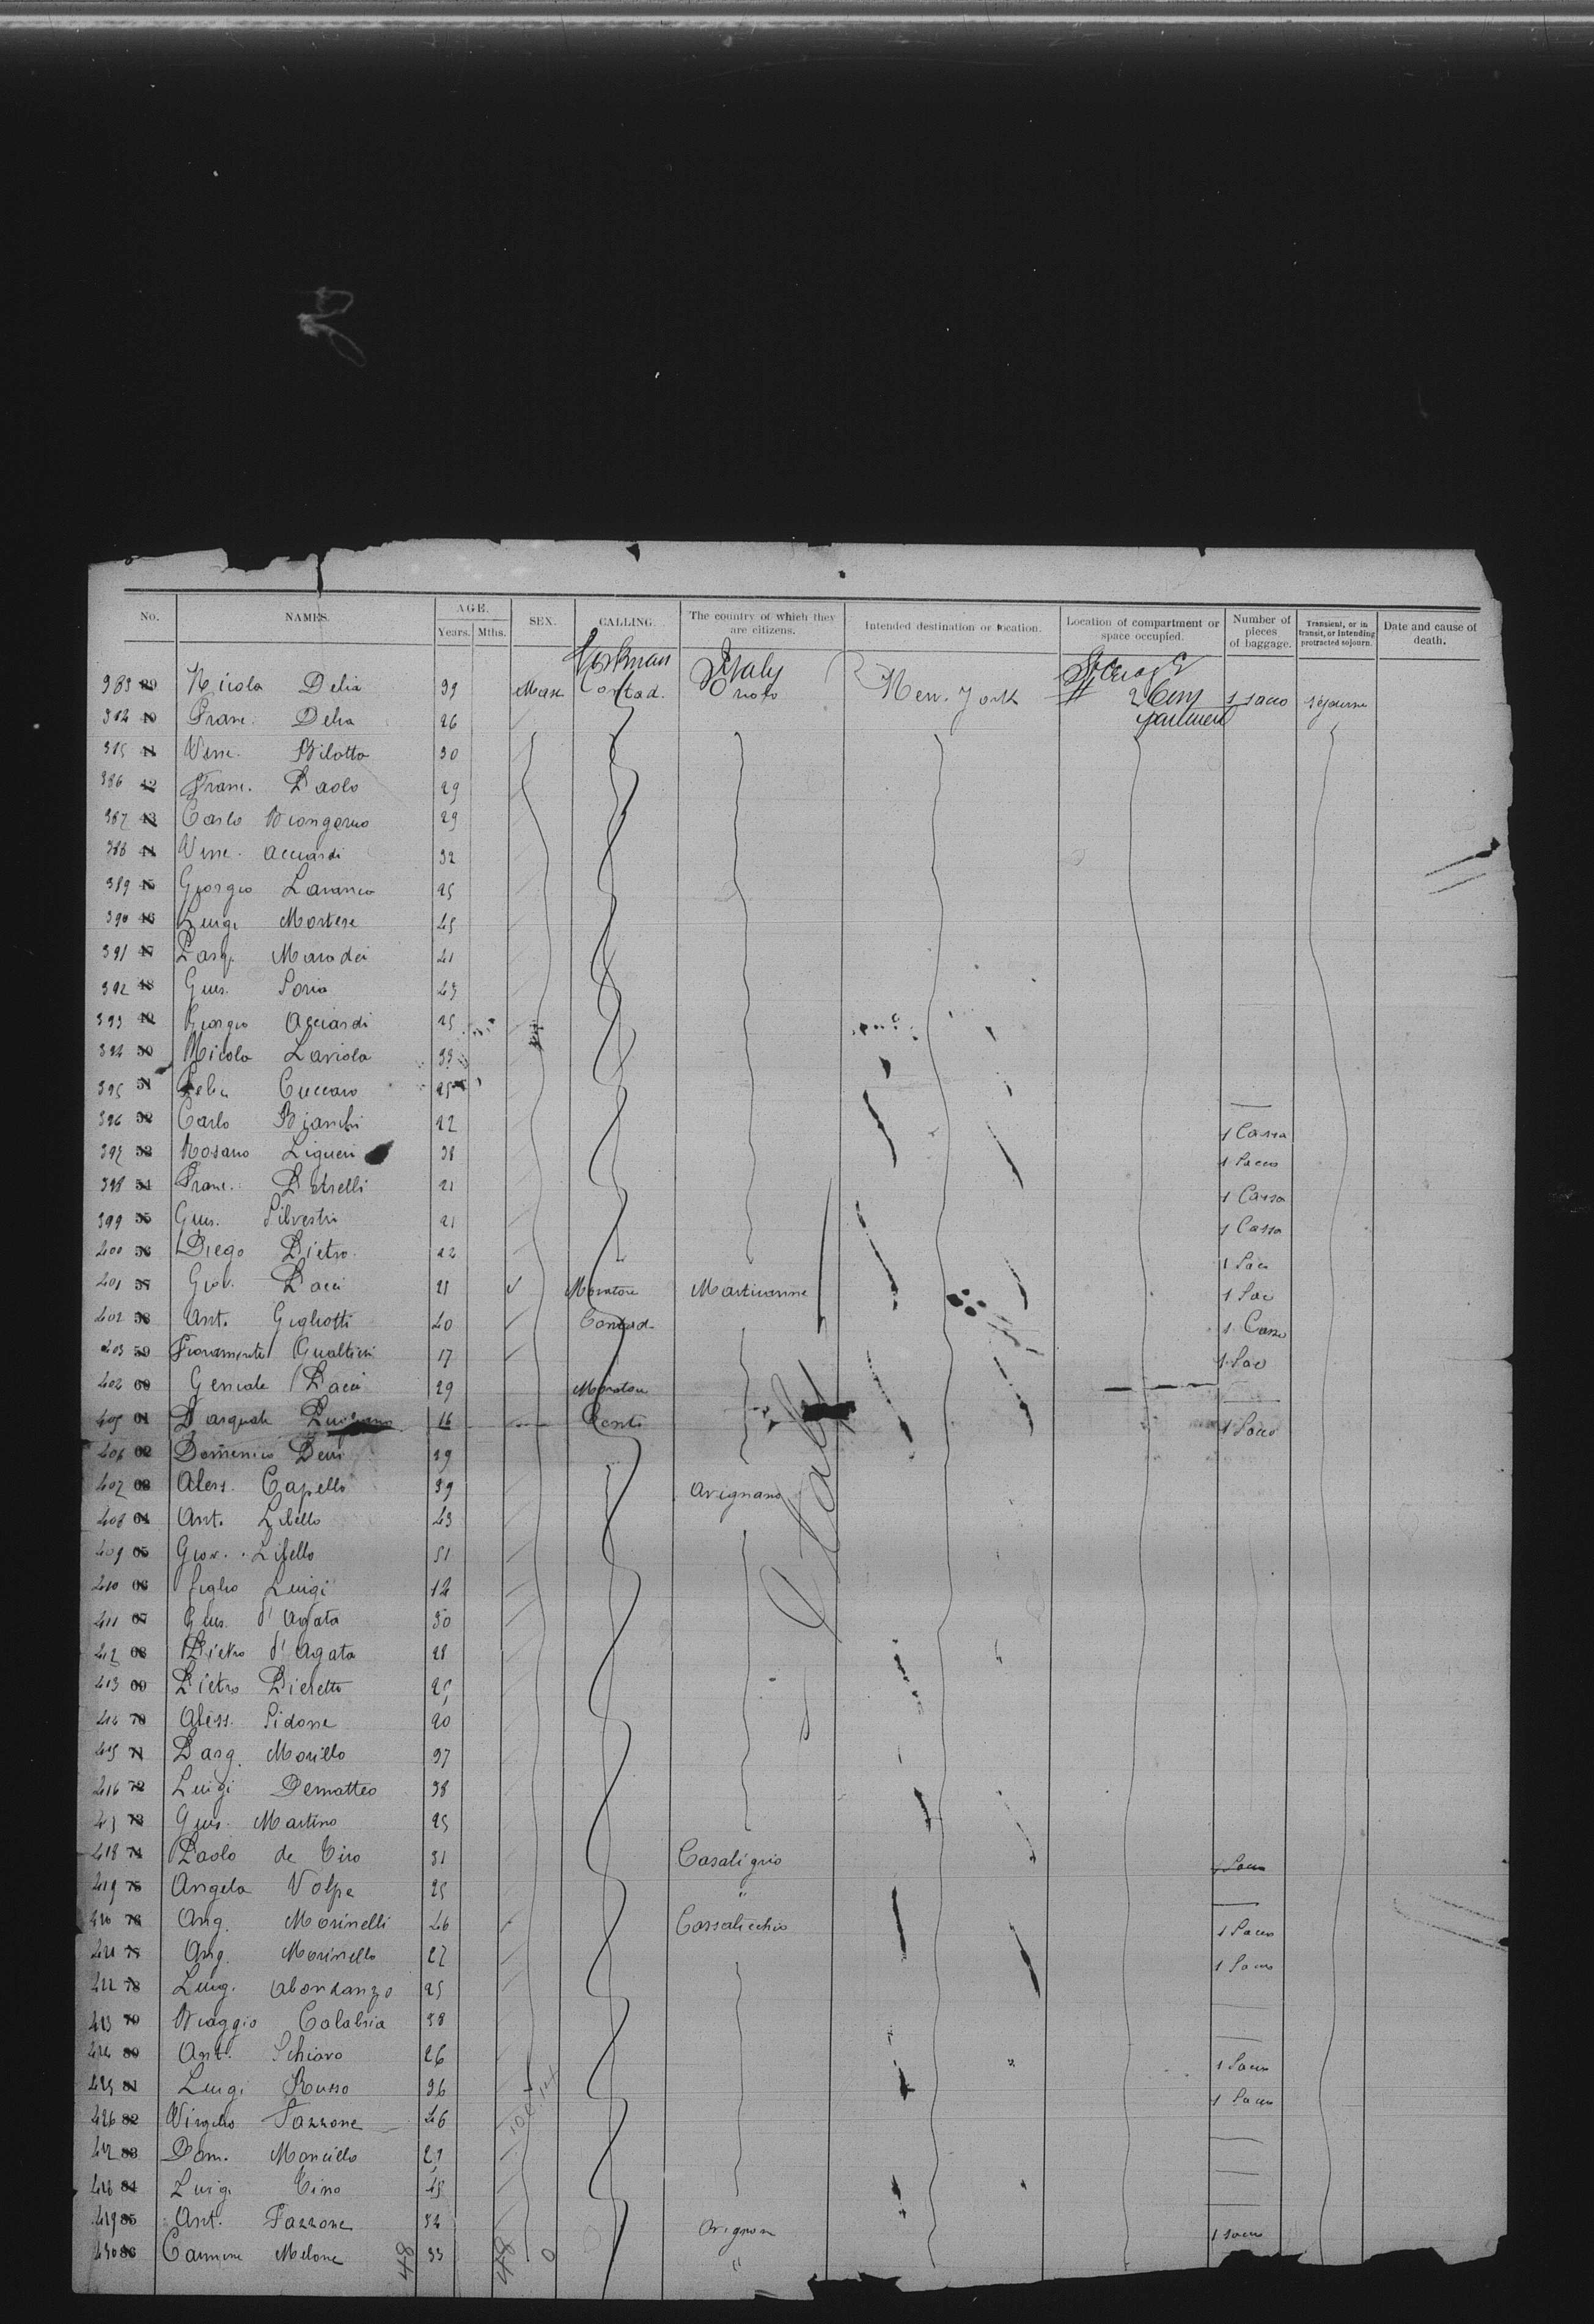 No. NAMES. AGE. Years. Mths. SEX. CALLING. The country of which they are citizens. Intended destination or location. Location of compartment or space occupied. Number of pieces of baggage. Transient, or in transit, or intending protracted sojourn. Date and cause of death.
Workman Italy Steerage
383 Nicola Delia 39 Mas Contad. New-York 2 Com 1 sacco séjourne
384 Franc. Delia 26 partment
385 Vinc. Bilotta 30
386 Franc. Paolo 29
387 Carlo 29
388 Vinc. Acciardi 32
389 Giorgio 25
390 Luigi Mortese 45
391 Pasq. Maradei 41
392 Gius. Soria 43
393 Giorgio Acciardi 25
394 Nicola Laviola 33
395 Cuccaro 25
396 Carlo Bianchi 22 1 Cassa
397 Rosario Ligueri 38 1 Sacco
398 Franc. Petrelli 21 1 Cassa
399 Gius. Silvestri 21 1 Cassa
400 56 Diego Pietro 22 1 Sacco
401 57 Giov. Pacci 28 Moratore 1 Sac
402 58 Ant. Gigliotti 40 Contad. 1 Cassa
403 59 Gualtieri 17 1 Sac
404 60 Geniale Pacci 29 Moratore
405 61 Pasquale 16 Conta 1 Sacco
406 62 Domenico 39
407 63 Aless. Capello 39 Avignano
408 64 Ant. Libello 43
409 65 Giov. Libello 51
410 66 figlio Luigi 14
411 67 Gius. d'Agata 30
412 68 Pietro d'Agata 28
413 69 Pietro 25
414 70 Aless. Sidone 20
415 71 Pasq. Morillo 37
416 72 Luigi Dematteo 38
417 73 Gius. Martino 25
418 74 Paolo de Tiro 31 Casaligrio 1 Sacco
419 75 Angela Volpe 25 "
420 76 Ang. Morinelli 46 Cassalicchio 1 Sacco
421 77 Ang. Morinello 22 1 Sacco
422 78 Luig. Abondanzo 25
423 79 Biaggio Calabria 38
424 80 Ant. Schiavo 26 1 Sacco
425 81 Luigi Russo 36 1 Sacco
426 82 Virgilio Fazzone 46
427 83 Dom. 21
428 84 Luigi Tino 45
429 85 Ant. Fazzone 34 Avignon 1 sacco
430 86 Carmine Melone 33 "
48 48 0
Italy